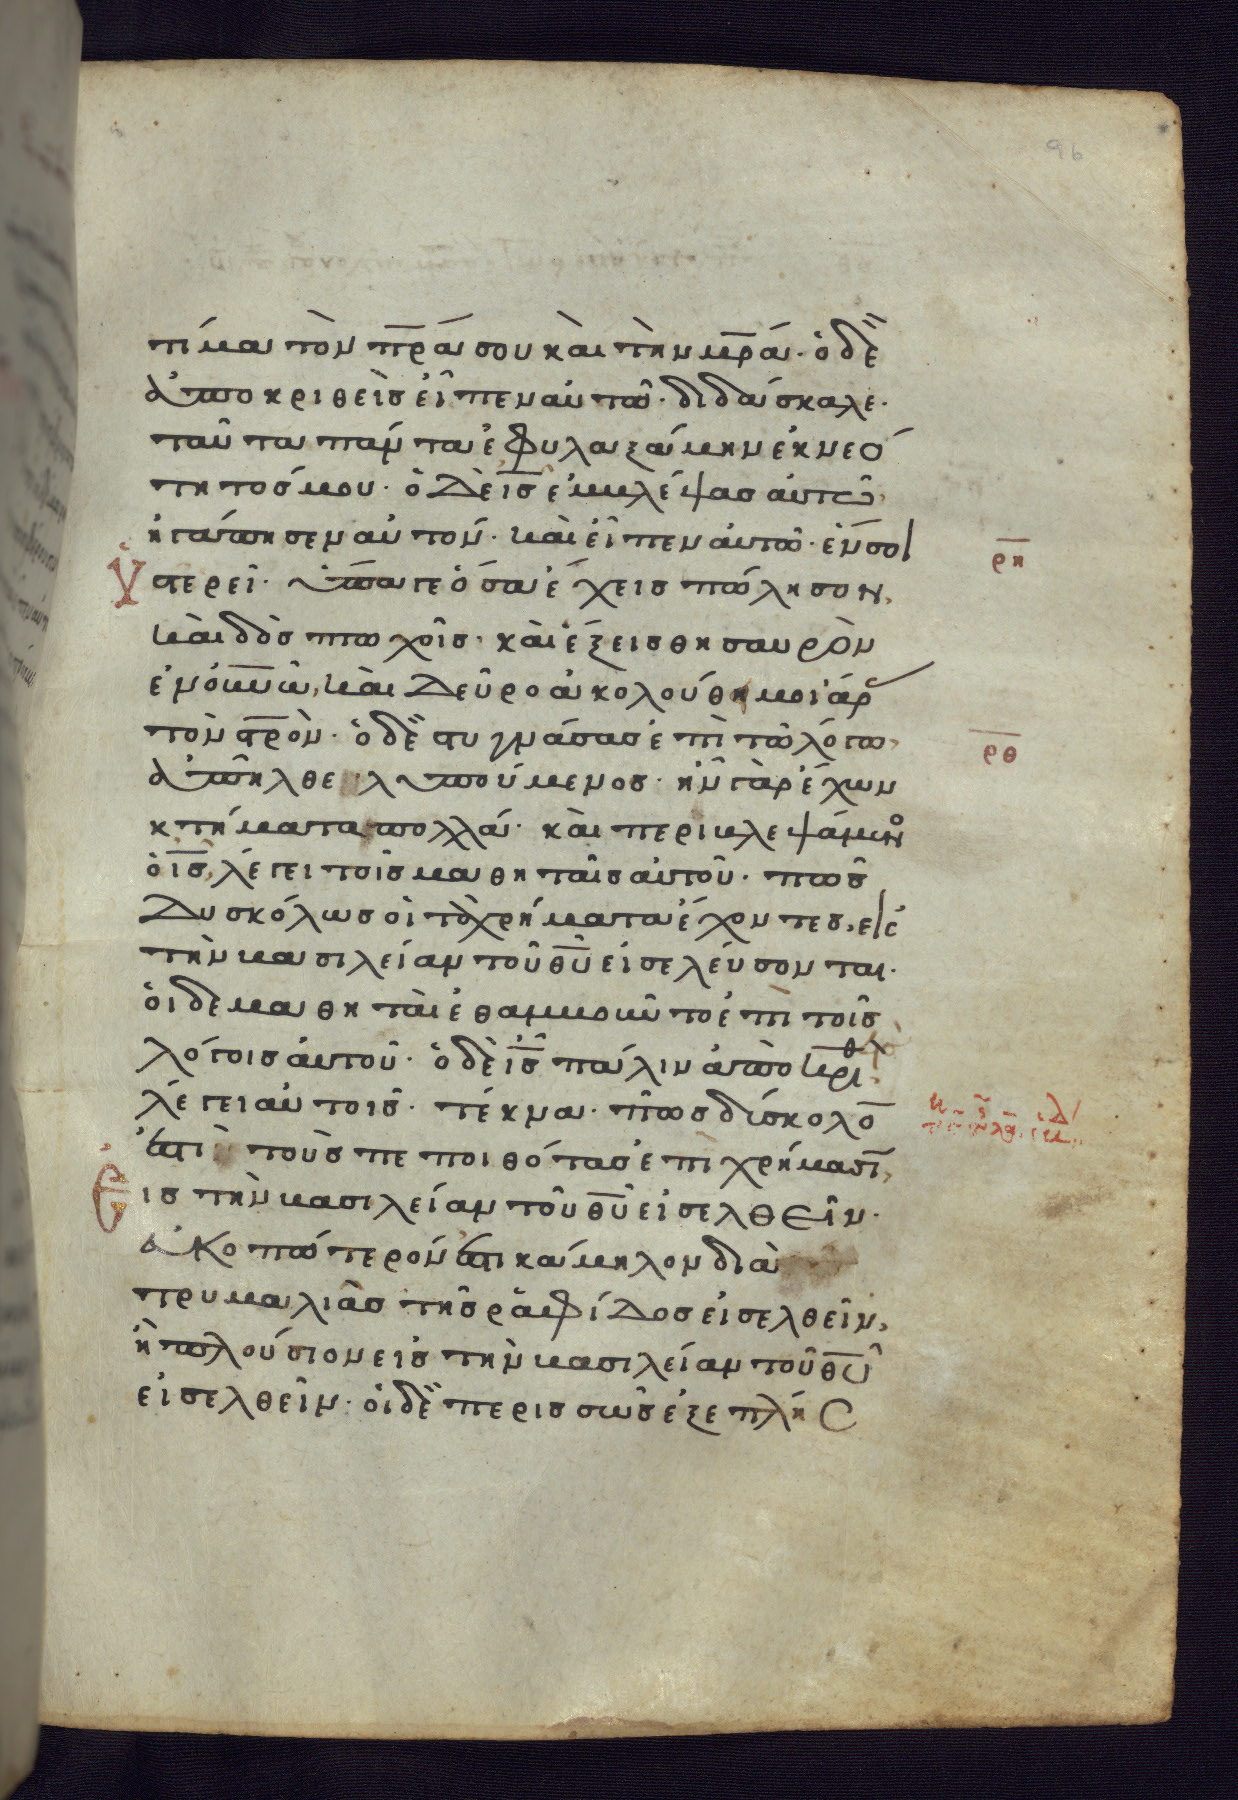 96
τίμα τὸν π̅ρ̅α σου καὶ τὴν μ̅ρ̅α· ὁ δὲ
ἀποκριθεὶς εἶπεν αὐτῶ· διδάσκαλε·
ταῦτα πάντα ἐφυλαξάμην ἐκ νεό
τητός μου· ὁ δὲ ι̅ς̅ ἐμβλέψας αὐτῶ,
ἠγάπησεν αὐτὸν· καὶ εἶπεν αὐτῶ· ἕν σοι
ὑστερεῖ· ὕπαγε ὅσα ἔχεις πώλησον,
καὶ δὸς πτωχοῖς· καὶ ἕξεις θησαυρὸν
ἐν ο̅υ̅ν̅ω̅, καὶ δεῦρο ἀκολούθη μοι ἄρ
τὸν σ̅ρ̅ὸν· ὁ δὲ στυγνάσας ἐπὶ τῶ λόγω,
ἀπῆλθε λυπούμενος· ἦν γὰρ ἔχων
κτήματα πολλά· καὶ περιβλεψάμεν
ὁ ι̅ς̅, λέγει τοῖς μαθηταῖς αὐτοῦ· πῶς
δυσκόλως οἱ τὰ χρήματα ἔχοντες, εἰς
τὴν βασιλείαν τοῦ θ̅υ̅ εἰσελεύσονται·
οἱ δὲ μαθηταὶ ἐθαμβοῦντο ἐπὶ τοῖς
λόγοις αὐτοῦ· ὁ δὲ ι̅ς̅ πάλιν ἀποκριθ
λέγει αὐτοῖς· τέκνα· πῶς δύσκολο̅
ἐστὶ τοὺς πεποιθότας ἐπὶ χρήμασι̅,
εἰς τὴν βασιλείαν τοῦ θ̅υ̅ εἰσελθεῖν·
εὐκοπώτερόν ἐστι κάμηλον διὰ
τρυμαλιᾶς τῆς ῥαφίδος εἰσελθεῖν,
ἢ πλούσιον εἰς τὴν βασιλείαν τοῦ θ̅υ̅
εἰσελθεῖν· οἱ δὲ περισσῶς ἐξεπλήσ
ρ̅η̅
ρ̅θ̅